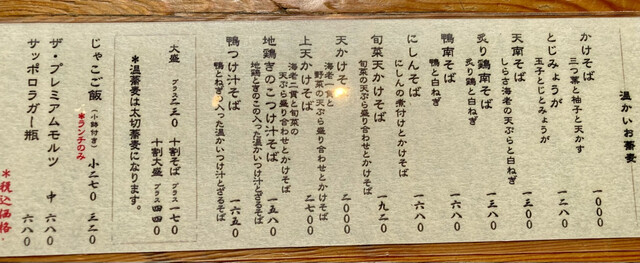 温かいお蕎麦
かけそば 一〇〇〇
三つ葉と柚子と天かす
とじみょうが 一二八〇
玉子とじとみょうが
天南そば 一三〇〇
しらさ海老の天ぷらと白ねぎ
炙り鶏南そば 一五八〇
炙り鶏と白ねぎ
鴨南そば 一六八〇
鴨と白ねぎ
にしんそば 一六八〇
にしんの煮付けとかけそば
旬菜天かけそば 一九二〇
旬菜の天ぷら盛り合わせとかけそば
天かけそば 二〇〇〇
海老一貫と
野菜の天ぷら盛り合わせとかけそば
上天かけそば 二七〇〇
海老二貫と旬菜の
天ぷら盛り合わせとかけそば
地鶏きのこつけ汁そば 一五八〇
地鶏ときのこの入った温かいつけ汁とざるそば
鴨つけ汁そば 一六五〇
鴨とねぎの入った温かいつけ汁とざるそば
大盛 プラス二三〇 十割そば プラス一七〇
十割大盛 プラス四四〇
*温蕎麦は太切蕎麦になります。
じゃこご飯 (小鉢付き) 小二七〇 三二〇
*ランチのみ
ザ・プレミアムモルツ 中 六八〇
サッポロラガー瓶 六八〇
*税込価格